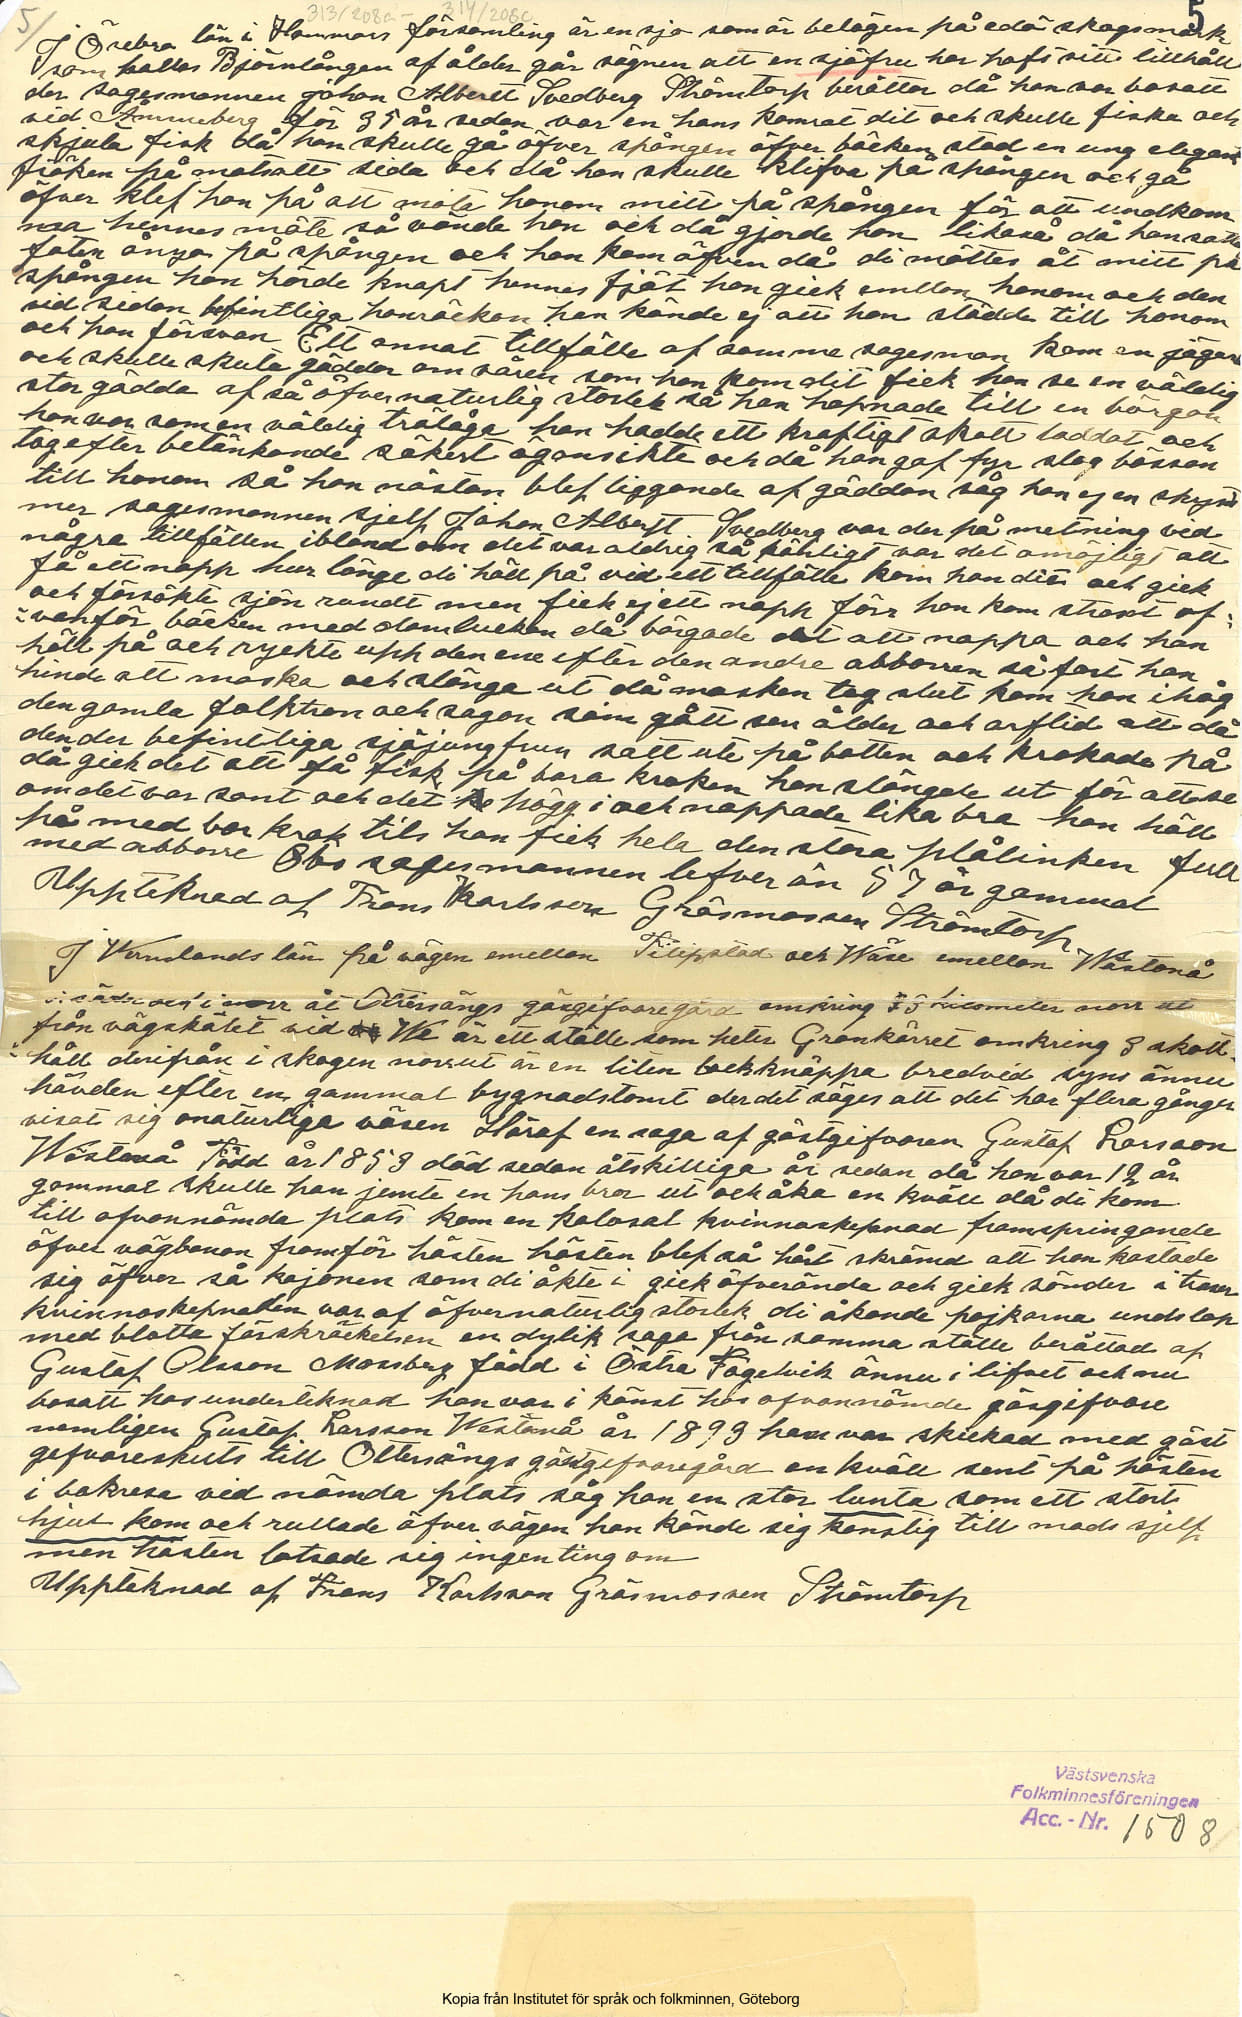 5/
313/208a - 314/208c
5
I Örebro län i Hammars församling är en sjo som är belägen på edö skogsmark
som kallas Björnlången af ålder går sägnen att en sjöfru har hafs sitt tillhåll
der sagesmannen johan Albertt Svedberg Strömtorp berättar då han var bosatt
vid Åmmeberg för 35 år sedan var en hans kamrat dit och skulle fiska och
skjuta fisk då han skulle gå öfver spången öfver bäcken stod en ung elegant
fröken på motsatt sida och då han skulle klifva på spången och gå
öfver klef hon på att möte honom mitt på spången för att undkom
ma hennes möte så vände han och då gjorde hon likaså då han satte
foten ånyo på spången och hon kom äfven då di möttes åt mitt på
spången han hörde knapt hennes fjät hon gick emellan honom och den
vid sidan befintliga hanräcken han kände ej att hon stödde till honom
och hon försvan Ett annat tillfälle af samme sagesman kom en jägare
och skulle skuta gäddor om våren som han kom dit fick han se en väldig
stor gädda af så öfvernaturlig storlek så han hapnade till en börgan
hon var som en väldig trälåga han hadde ett kraftigt skott laddat och
tog efter betänkande säkert ögonsikte och då han gaf fyr slog bössan
till honom så han nästan blef liggande af gäddan såg han ej en skymt
mer sagesmannen sjelf Johan Albertt Svedberg var der på metning vid
några tillfällen ibland om det var aldrig så var det omöjligt att
få ett napp hur länge di höll på vid ett tillfälle kom han dit och gick
och försökte sjön rundt men fick ej ett napp förr han kom straxt of-
vanför bäcken med damluckan då börgade det att nappa och han
höll på och ryckte upp den ene efter den andre abborren så fort han
hinde att maska och slänga ut då masken tog slut kom han ihåg
den gamla folktron och sagon som gått sen ålder och arftid att då
den der befintliga sjöjungfrun satt ute på botten och krokade på
då gick det att få fisk på bara kroken han slängde ut för att se
om det var sant och det högg i och nappade lika bra han höll
på med bar krok tils han fick hela den stora plålinken full
med abborre Obs sagesmannen lefver än 57 år gammal
Uppteknad af Frans Karlsson Gräsmossen Strömtorp
I Vermlands län på vägen emellan Filipstad och Wäse emellan Wästanå
i norr åt Ottersängs gäsgifvaregård omkring kilometer norr ut
från vägskälet vid We är ett ställe som heter Grankärret omkring 3 skott-
håll derifrån i skogen norrut är en liten backknäppa bredvid syns ännu
hävden efter en gammal bygnadstomt der det säges att det har flera gånger
visat sig onaturliga väsen Häraf en saga af gästgifvaren Gustaf Larsson
Wästanå Född år 1853 död sedan åtskilliga år sedan då han var 12 år
gammal skulle han jemte en hans bror ut och åka en kväll då di kom
till ofvannämda plats kom en kolosal kvinnoskepnad framspringande
öfver vägbanan framför hästen hästen blef så hårt skrämd att hon kastade
sig öfver så kajonen som di åkte i gick öfverända och gick sönder i trasor
kvinnoskepnaden var af öfvernaturlig storlek di åkande pojkarna undslap
med blotta förskräckelsen en dylik saga från samma ställe berättad af
Gustaf Olsson Mossberg född i Östra Fågelvik ännu i lifvet och nu
bosatt hos undertecknad han var i känst hos ofvannämde gäsgifvare
nemligen Gustaf Larsson Westanå år 1893 han var skickad med gäst
gefvareskuts till Ottersängs gästgefvaregård en kväll sent på hösten
i bakresa vid nämda plats såg han en stor lunta som ett stort
hjul kom och rullade öfver vägen han kände sig konstig till mods sjelf
men hästen lotsade sig ingenting om
Uppteknad af Frans Karlsson Gräsmossen Strömtorp
Västsvenska
Folkminnesföreningen
Acc.-Nr. 1508
Kopia från Institutet för språk och folkminnen, Göteborg